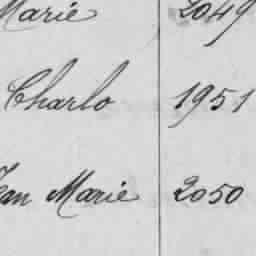 Marie 2049
Charlo 1951
Jean Marie 2050